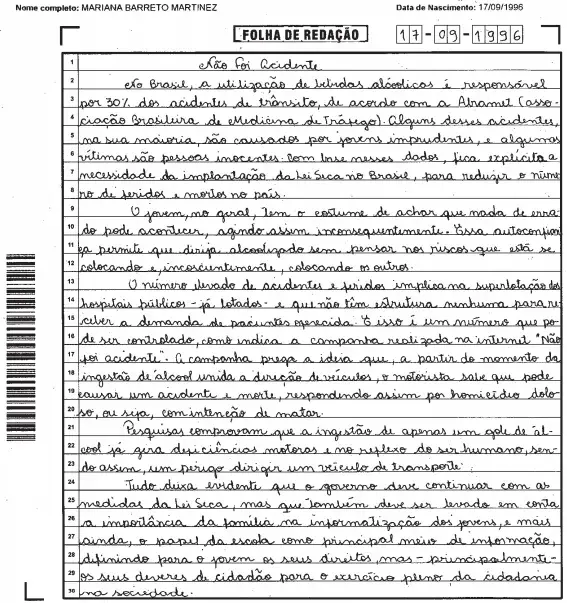 Nome completo: MARIANA BARRETO MARTINEZ
Data de Nascimento: 17/09/1996
FOLHA DE REDAÇÃO
17-09-1996
1 Não Foi Acidente
2 No Brasil, a utilização de bebidas alcóolicas é responsável
3 por 30% dos acidentes de trânsito, de acordo com a Abramet (asso-
4 ciação Brasileira de Medicina de Tráfego). Alguns desses acidentes,
5 na sua maioria, são causados por jovens imprudentes, e algumas
6 vítimas são pessoas inocentes. Com base nesses dados, fica explícita a
7 necessidade da implantação da Lei Seca no Brasil, para reduzir o núme
8 ro de feridos e mortos no país.
9 O jovem, no geral, tem o costume de achar que nada de erra-
10 do pode acontecer, agindo assim inconsequentemente. Essa autoconfian
11 ça permite que dirija alcoolizado sem pensar nos riscos que está se
12 colocando e, inconscientemente, colocando os outros.
13 O número elevado de acidentes e feridos implica na superlotação dos
14 hospitais públicos - já lotados - e que não têm estrutura nenhuma para re
15 ceber a demanda de pacientes oferecida. E isso é um número que po-
16 de ser controlado, como indica a campanha realizada na internet "Não
17 foi acidente". A campanha prega a ideia que, a partir do momento da
18 ingestão de álcool unida a direção de veículos, o motorista sabe que pode
19 causar um acidente e morte, respondendo assim por homicídio dolo-
20 so, ou seja, com intenção de matar.
21 Pesquisas comprovam que a ingestão de apenas um gole de ál-
22 cool já gera deficiências motoras e no reflexo do ser humano, sen-
23 do assim, um perigo dirigir um veículo de transporte.
24 Tudo deixa evidente que o governo deve continuar com as
25 medidas da Lei Seca, mas que também deve ser levado em conta
26 a importância da família na informatização dos jovens, e mais
27 ainda, o papel da escola como principal meio de informação,
28 definindo para o jovem os seus direitos, mas - principalmente -
29 os seus deveres de cidadão para o exercício pleno da cidadania
30 na sociedade.